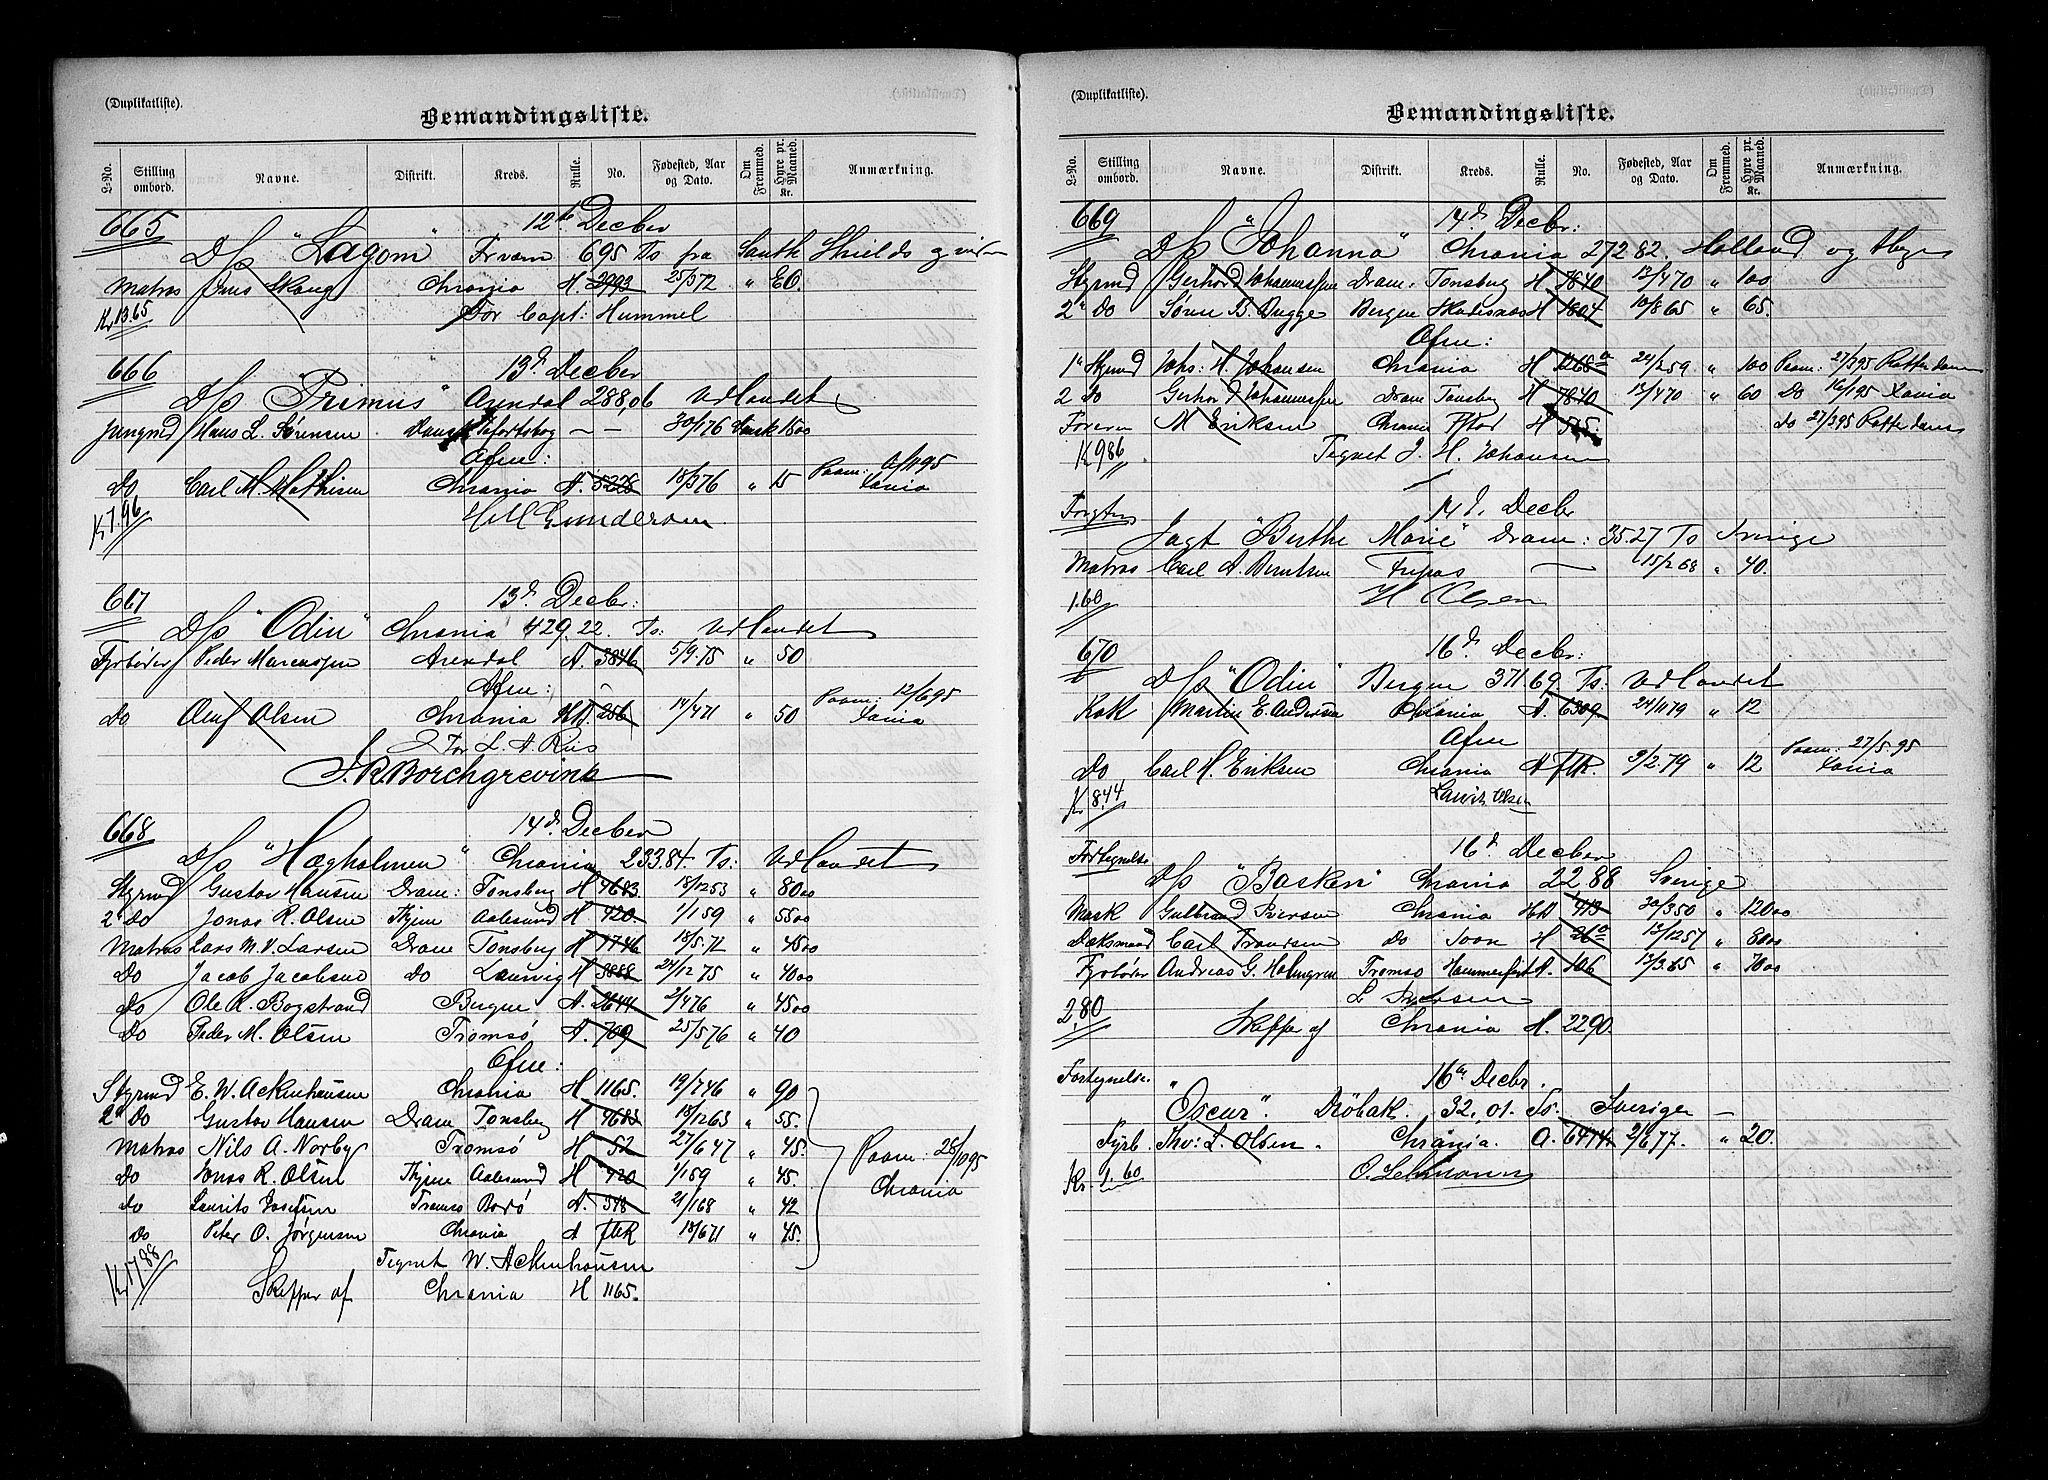 (Duplikatliste).
Bemandingsliste.
L-No. Stilling ombord. Navne. Distrikt. Kreds. Rulle. No. Fødested, Aar og Dato. Om Fremmed. Hyre pr. Maaned. Kr. Anmærkning.
665 12te Decber
D/s "Lagom" 695 Ts fra South Shields
Matros Skaug Chrania H. 2993 25/5 72 " 60.
Kr 13.65 For Capt: Hummel
666 13d Decber
D/s "Primus" Arendal 288,06 Udlandet
Jungmd Hans L. Sørensen Dansk — — 30/1 76 Dansk 1500
Ofne:
Do Carl M. Mathisen Chrania A. 5228 18/5 76 " 15 Paam:
Kr 7.96 Xania
H M Gundersen
667 13d Decbr:
D/s "Odin" Chrania 429.22. Ts: Udlandet
Fyrbøder Peder Marcussen Arendal A. 3846 5/9.75 " 50
Afm:
Do Oluf Olsen Chrania HD 256 14/4 71 " 50 Paam: 12/6 95 Xania
For L. A. Riis
Borchgrevink
668 14d. Decber
D/s "Høgholmen" Chrania 233.84. Ts: Udlandet
Styrmd Gustav Hansen Dram: Tonsberg H 4683 18/12 53 " 8000
2d Do Jonas R. Olsen Thjem Aalesund H 420 1/1 59 " 5500
Matros Lars M. V. Larsen Dram Tonsberg H 1746 18/5.72 " 4500
Do Jacob Jacobsen Do Laurvig H 3888 24/12 75 " 4000
Do Ole A. Bogstrand Bergen A. 2644 2/4 76 " 4500
Do Peder M. Olsen Tromsø A. 709 25/5 76 " 40
Ofne:
Styrmd E. W. Ackenhausen Chrania H 1165. 19/7 46 " 90
2d Do Gustav Hansen Dram Tonsberg H 4683 18/12 63 " 55.
Matros Nils A. Norby Tromsø H 52 27/6 47 " 45.
Do Jonas R. Olsen Thjem Aalesund H 420 1/1 59 " 45. Paam: 28/10 95
do Laurits Josefsen Tromsø Bodø A. 318 21/1 68 " 42 Chrania
Do Peter O. Jørgensen Chrania A ftk 18/6 71 " 45.
Kr 17.88 Tegnet W. Ackenhausen
Skipper af Chrania H 1165.
(Duplikatliste).
Bemandingsliste.
L-No. Stilling ombord. Navne. Distrikt. Kreds. Rulle. No. Fødested, Aar og Dato. Om Fremmed. Hyre pr. Maaned. Kr. Anmærkning.
669 14d Decbr:
D/s "Johanna" Chrania 272 82. Holland og
Styrmd Gerhard Johannessen Dram. Tonsberg H 7840 12/4 70 " 100
2d Do Søren B. Bugge Bergen H 1804 10/8 65 " 65.
Ofne:
1e Styrmd Johs: H. Johansen Chrania H 1268a 24/2 59 " 100 Paam: 27/3 95 Rotterdam
2 Do Gerhar J Johannessen Dram Tonsberg H 7840 12/4 70 " 60 Do 16/1 95 Xania
M Eriksen Chrania H 525. do 27/3 95 Rotterdam
Kr 9.86 Tegnet J. H. Johansen
14d. Decbr
Jagt "Berthe Marie" Dram: 35.27 Ts Sverige
Matros Carl A. Berntsen Fripas — 15/2 68 " 40.
1.60 H Olsen
670 16d Decbr:
D/s "Odin" Bergen 371.69. Ts: Udlandet
Kok Martin E. Andersen Chrania A. 6309 24/11 79 " 12
Ofne
Do Carl H. Eriksen Chrania A ftk. 9/2.79 " 12 Paam: 27/5.95 Xania
Kr 8.44 Lauritz Olsen
Fortegnelse 16d Decber
D/s "Basken" Chrania 22,88 Sverige
Mask Gulbrand Iversen Chrania HD 413 30/3 50 " 12000
Dæksmand Carl Frandsen Do Soon H 26a 12/12 57 " 8000
Fyrbøder Andreas G. Holmgren Tromsø Hammerfest A. 106 13/3.65 " 7000
2,80 L Iversen
Skipper af Chrania H. 2290.
Fortegnelse. 16de Decbr.
"Oscar". Drøbak. 32.01. Ts. Sverige —
Fyrb. Thv: L. Olsen. Chrania. A. 6474 2/6 77. " 20.
Kr. 1.60 O. Lehmann